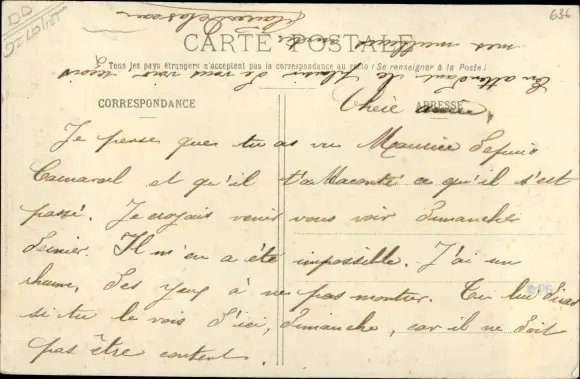 636
CARTE POSTALE
Tous les pays étrangers n'acceptent pas la correspondance au recto (Se renseigner à la Poste)
CORRESPONDANCE
ADRESSE
Chère amie,
Je pense que tu as vu Maurice depuis
Carnaval et qu'il t'a raconté ce qu'il s'est
passé. Je croyais venir vous voir dimanche
dernier. Il m'en a été impossible. J'ai un
rhume, des yeux à ne pas montrer. Tu lui diras
si tu le vois d'ici, dimanche, car il ne doit
pas être content.
En attendant le plaisir de vous revoir
mes meilleurs